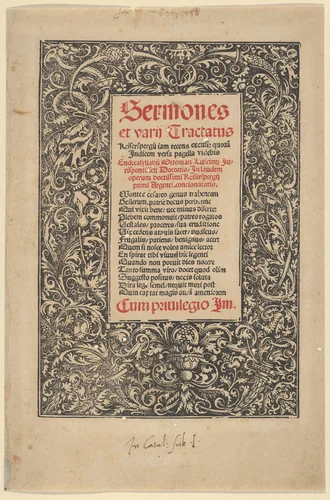 Sermones
et varij Tractatus
Keiserspergij iam recens excusi: quorũ
Indicem versa pagella videbis
Endecasyllabũ Ottomari Luscinij Ju-
risponti: scij Doctoris, In laudem
operum doctissimi Keiserspergij
primi Argenti. concionatoris.
Monte cesareo genus trahentem
Keiserum, patrie decus perenne
Qui vixit bene, nec minus diserte:
Plebem commonuit, patres rogatos
Vestales, proceres, sua eruditione
Frugalis, patiens, benignus, acer:
Quem si nosce voles amice lector
En spirat tibi viuus hic legenti
Quando non potuit dies nocere
Tanto summa viro, docet quod olim
Suggesto positus, necis soluta
Dira lege, semel, nequit mori post
Cum priuilegio Im.
In Catal. sub I.